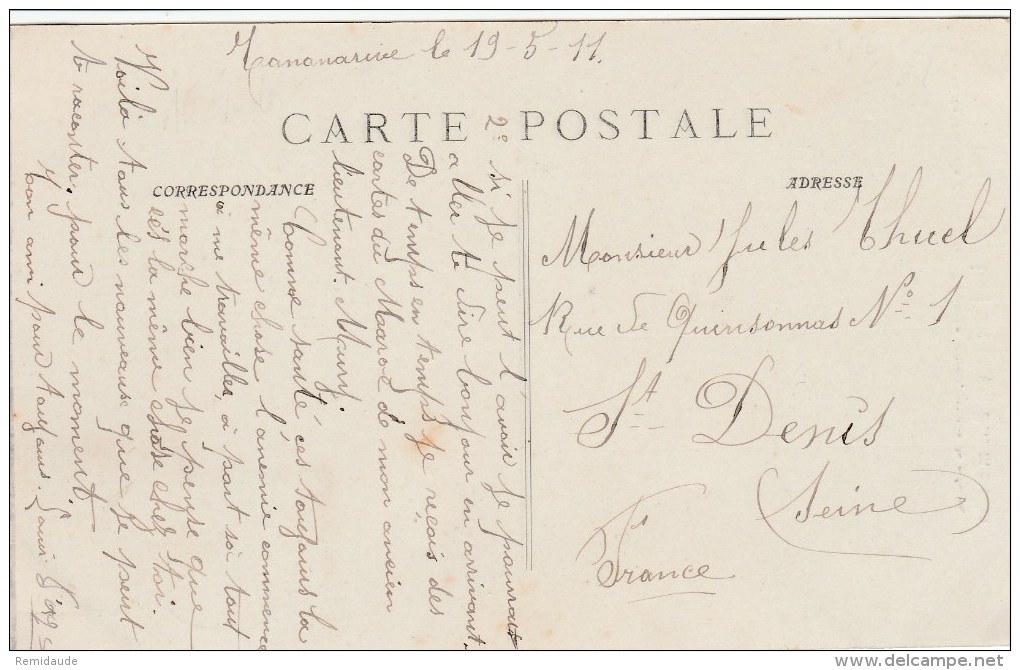 Tananarive le 19-5-11.
CARTE POSTALE
CORRESPONDANCE
ADRESSE
2° si je peut l'avoir je pourrait
aller te dire bonjour en arrivant.
De temps en temps je reçois des
cartes du Maroc de mon ancien
lieutenant Maury.
Comme santé c'es toujours la
même chose l'anemie commence
a me travailler, à part sa tout
marche bien je pense que
c'es la même chose chez toi.
Voilà tous les nouveaux que je peut
te raconter pour le moment
ton ami pour toujours. Louis
Monsieur Jules Thuel
Rue de Quinsonnas N° 1
St Denis
(Seine)
France
Remidaude
www.delcampe.net